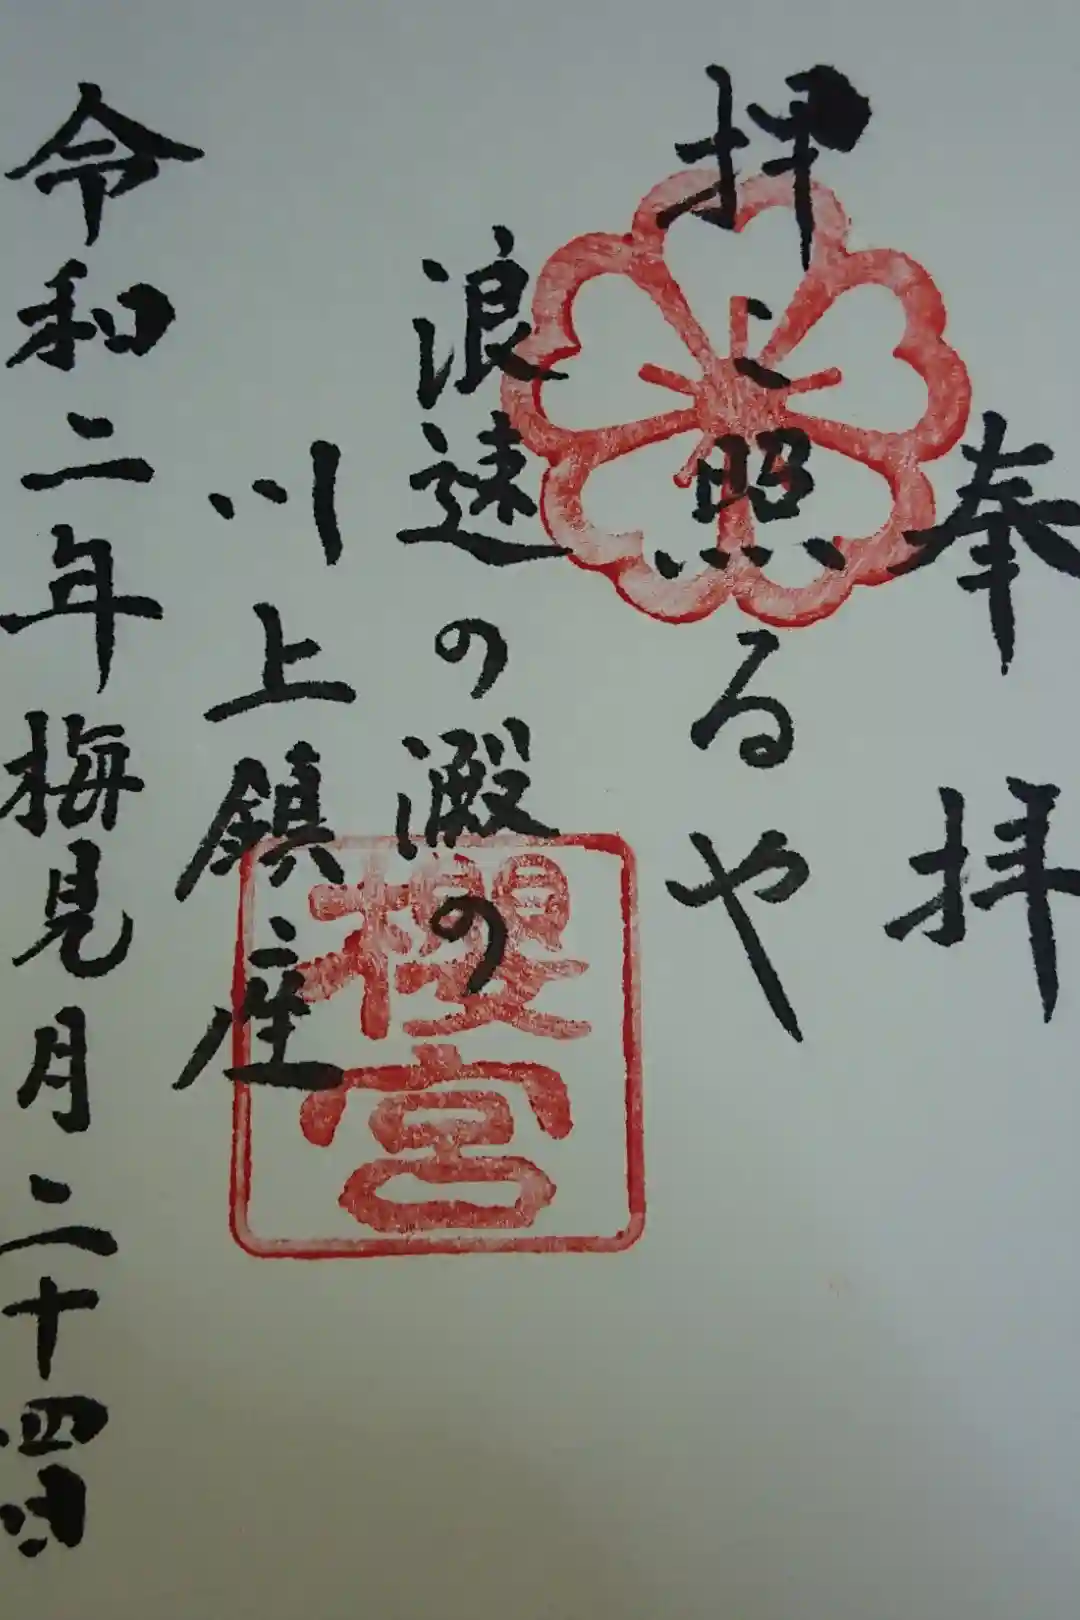 奉拝
押し照るや
浪速の澱の
川上鎮座
令和二年梅見月二十四日
櫻宮